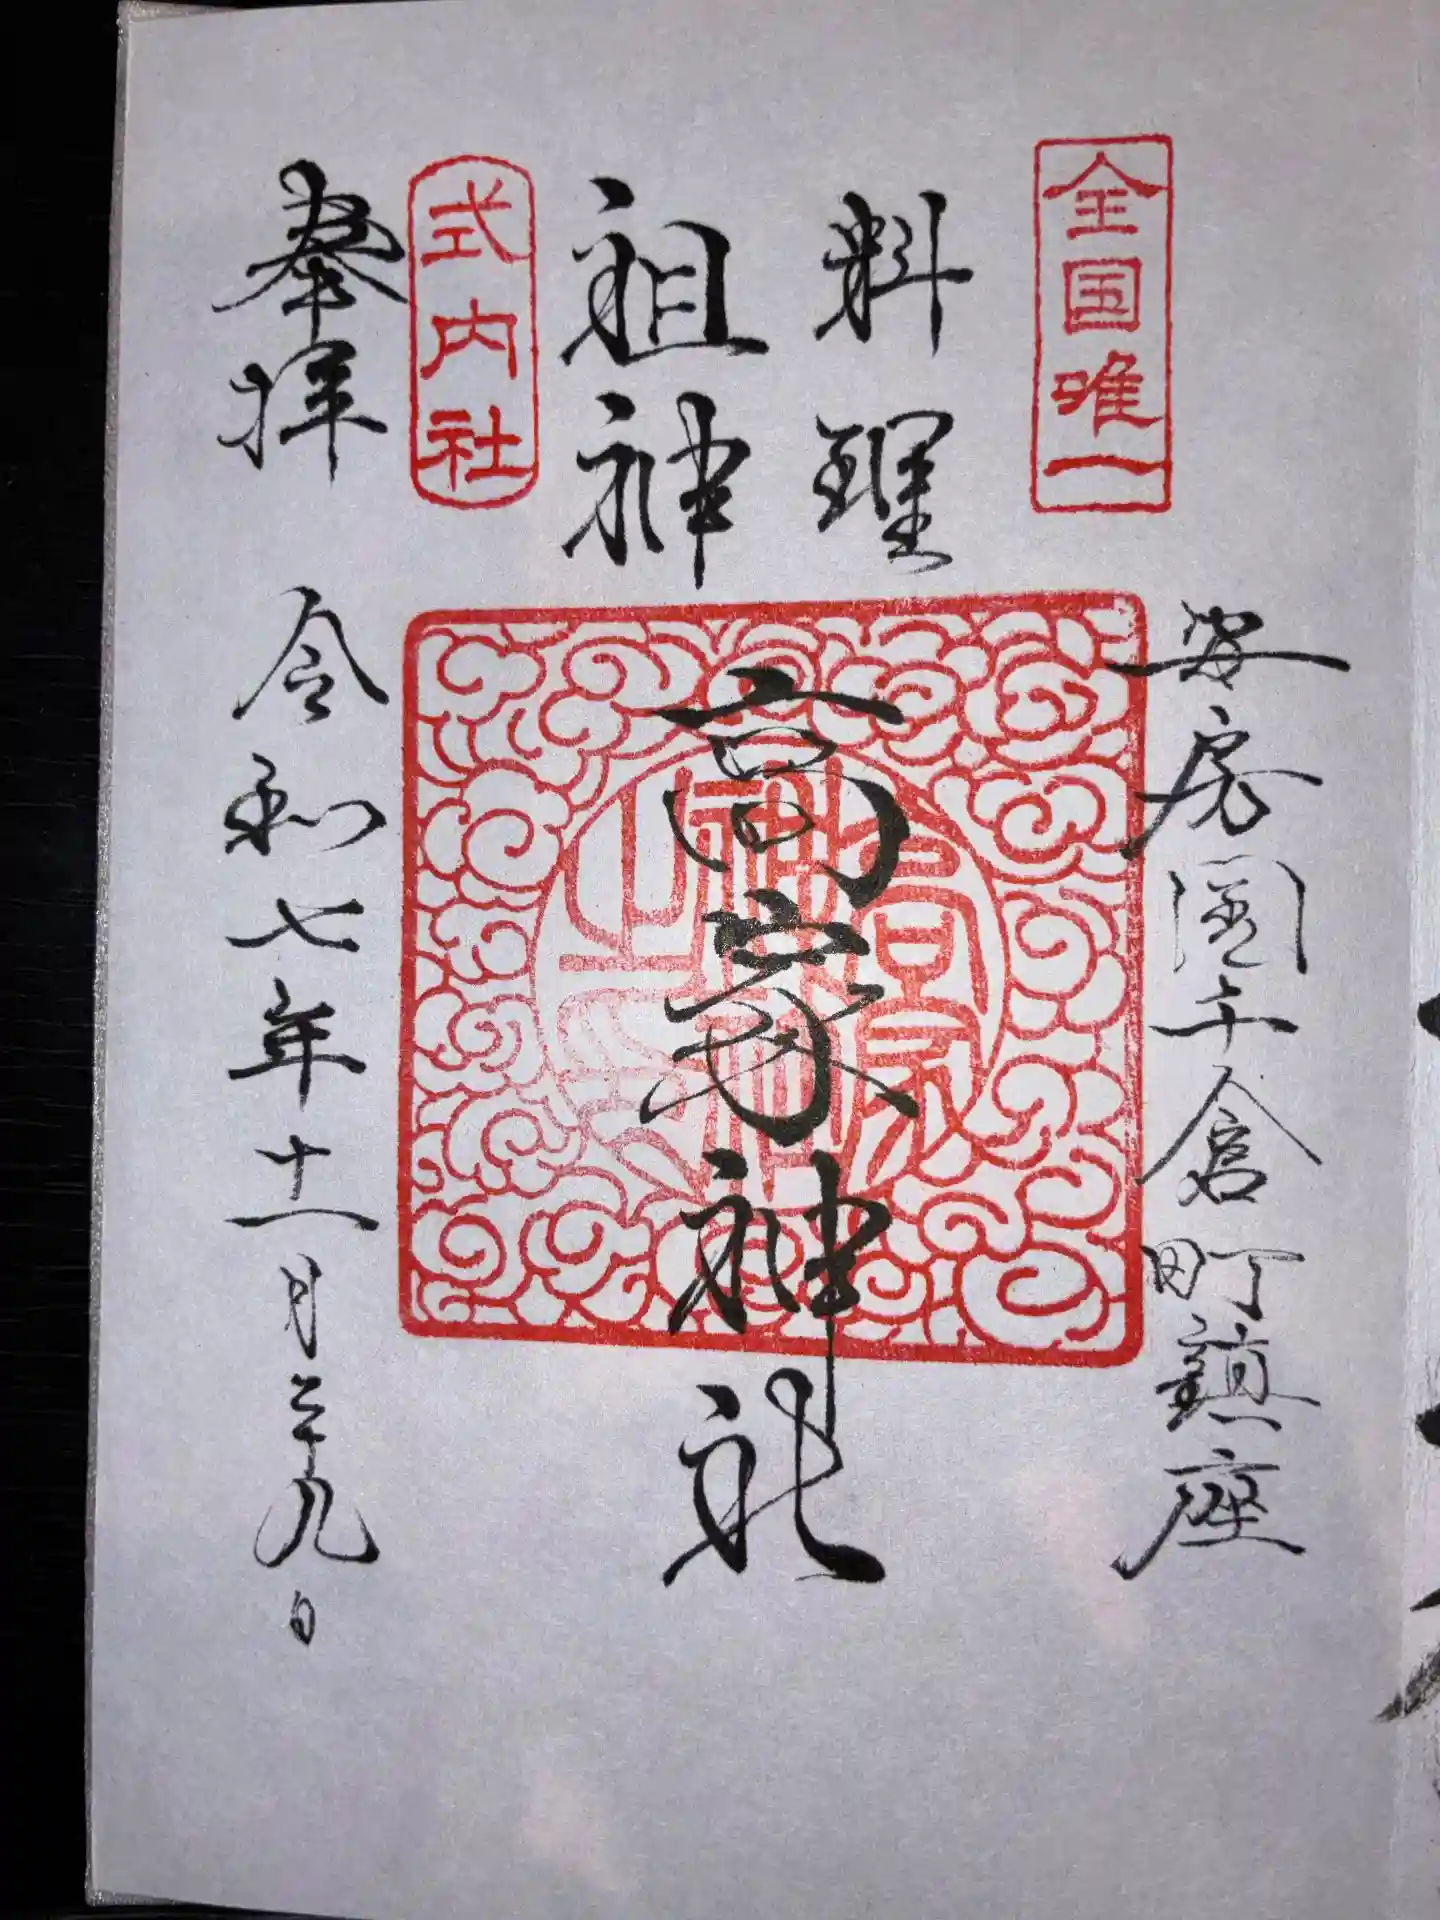 全国唯一
安房国千倉町鎮座
料理
祖神
高家神社
式内社
奉拝
令和七年十一月二十九日